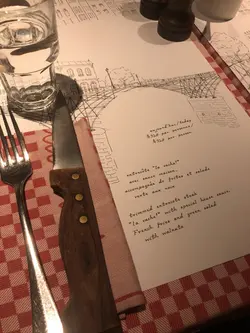 aujourd'hui/today
entrecôte "la vache!"
avec sauce maison,
accompagnée de frites et salade
verte aux noix
trimmed entrecote steak
"la vache!" with special house sauce,
French fries and green salad
with walnuts